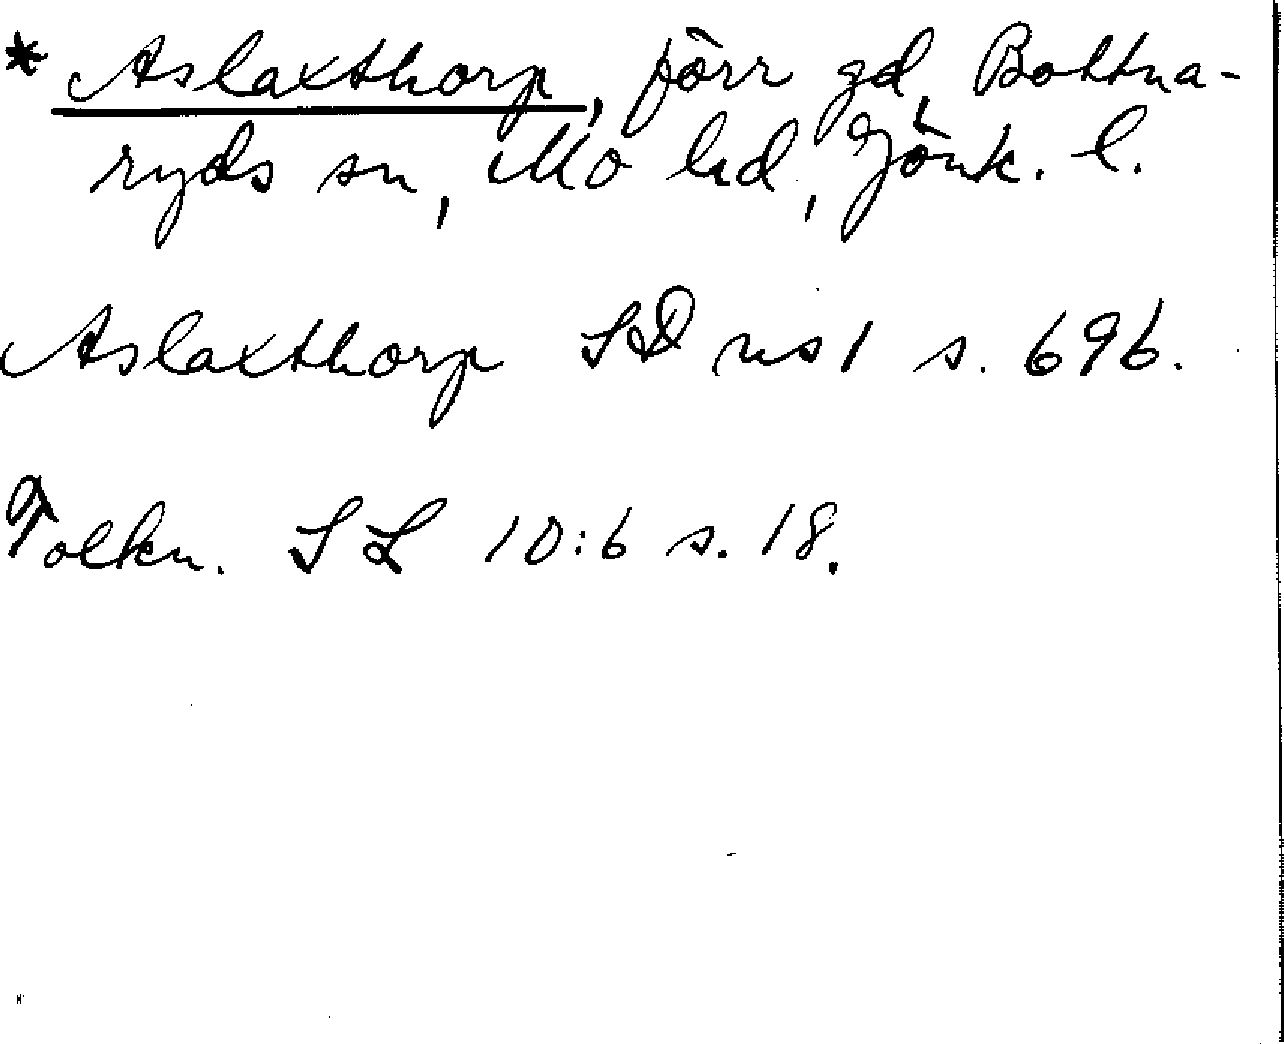 * Aslaxthorp, förr gd, Bottna-
ryds sn, Mo hd, Jönk. l.
Aslaxthorp SD ns 1 s. 696.
Tolkn. SL 10:6 s. 18.